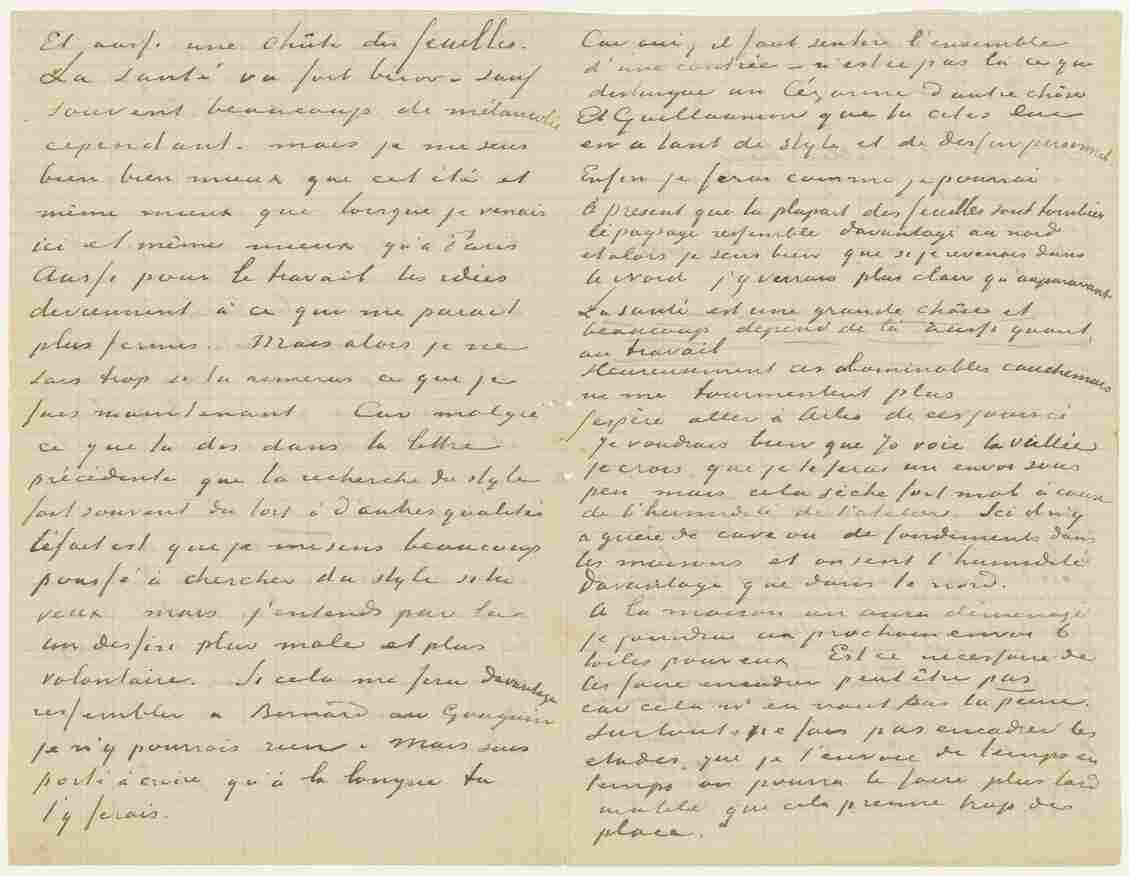 Et aussi une chûte des feuilles.
La santé va fort bien – sauf
souvent beaucoup de mélancolie
cependant. mais je me sens
bien bien mieux que cet été et
même mieux que lorsque je venais
ici et même mieux qu'à Paris
Aussi pour le travail les idées
deviennent à ce qui me parait
plus fermes. Mais alors je ne
sais trop si tu aimeras ce que je
fais maintenant Car malgré
ce que tu dis dans la lettre
précédente que la recherche du style
fait souvent du tort à d'autres qualités
le fait est que je me sens beaucoup
poussé à chercher du style si tu
veux mais j'entends par là
un dessin plus male et plus
volontaire. Si cela me fera davantage
ressembler à Bernard ou Gauguin
je n'y pourrais rien. Mais suis
porté à croire qu'à la longue tu
t'y ferais.
Car oui, il faut sentir l'ensemble
d'une contrée – n'est ce pas là ce que
distingue un Cézanne d'autre chôse
Et Guillaumin que tu cites lui
en a tant de style et de dessin personnel.
Enfin je ferai comme je pourrai
A présent que la plupart des feuilles sont tombées
le paysage ressemble davantage au nord
et alors je sens bien que si je revenais dans
le nord j'y verrais plus clair qu'auparavant
La santé est une grande chôse et
beaucoup depend de là aussi quant
au travail
Heureusement ces abominables cauchemars
ne me tourmentent plus
j'espère aller à Arles de ces jours ci
Je voudrais bien que Jo voie la veillée
je crois que je te ferai un envoi sous
peu mais cela sèche fort mal à cause
de l'humidité de l'atelier. Ici il n'y
a guère de cave ou de fondements dans
les maisons et on sent l'humidité
davantage que dans le nord.
A la maison on aura déménagé
je joindrai au prochain envoi 6
toiles pour eux Est ce nécessaire de
les faire encadrer peut être pas
car cela n'en vaut pas la peine.
Surtout ne fais pas encadrer les
etudes que je t'envoie de temps en
temps on pourra le faire plus tard
inutile que cela prenne trop de
place.